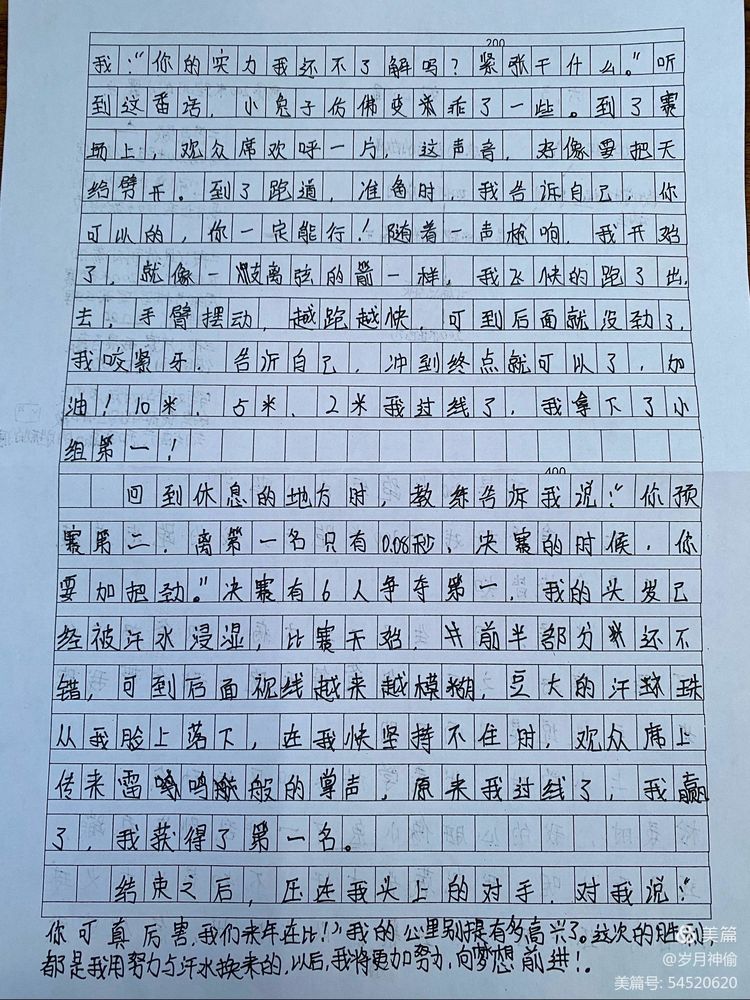 200
我:“你的实力我还不了解吗?紧张干什么。”听
到这番话,小兔子仿佛变乖了一些。到了赛
场上,观众席欢呼一片,这声音,好像要把天
给劈开。到了跑道,准备时,我告诉自己,你
可以的,你一定能行!随着一声枪响,我开始
了,就像一被离弦的箭一样,我飞快的跑了出
去,手臂摆动,越跑越快,可到后面就没劲了,
我咬紧牙,告诉自己,冲到终点就可以了,加
油!10米、5米、2米我过线了,我拿下了小
组第一!
400
回到休息的地方时,教练告诉我说:“你预
赛第二,离第一名只有0.08秒,决赛的时候,你
要加把劲。”决赛有6人争夺第一,我的头发已
经被汗水浸湿,比赛开始,前半部分还不
错,可到后面视线越来越模糊,豆大的汗珠
从我脸上落下,在我快坚持不住时,观众席上
传来雷鸣般的掌声,原来我过线了,我赢
了,我获得了第一名。
结束之后,压在我头上的对手,对我说:“
你可真厉害,我们来年在比!”我的心里别提有多高兴了。这次的胜利
都是我用努力与汗水换来的,以后,我将更加努力,向梦想前进!
美篇
@岁月神偷
美篇号: 54520620